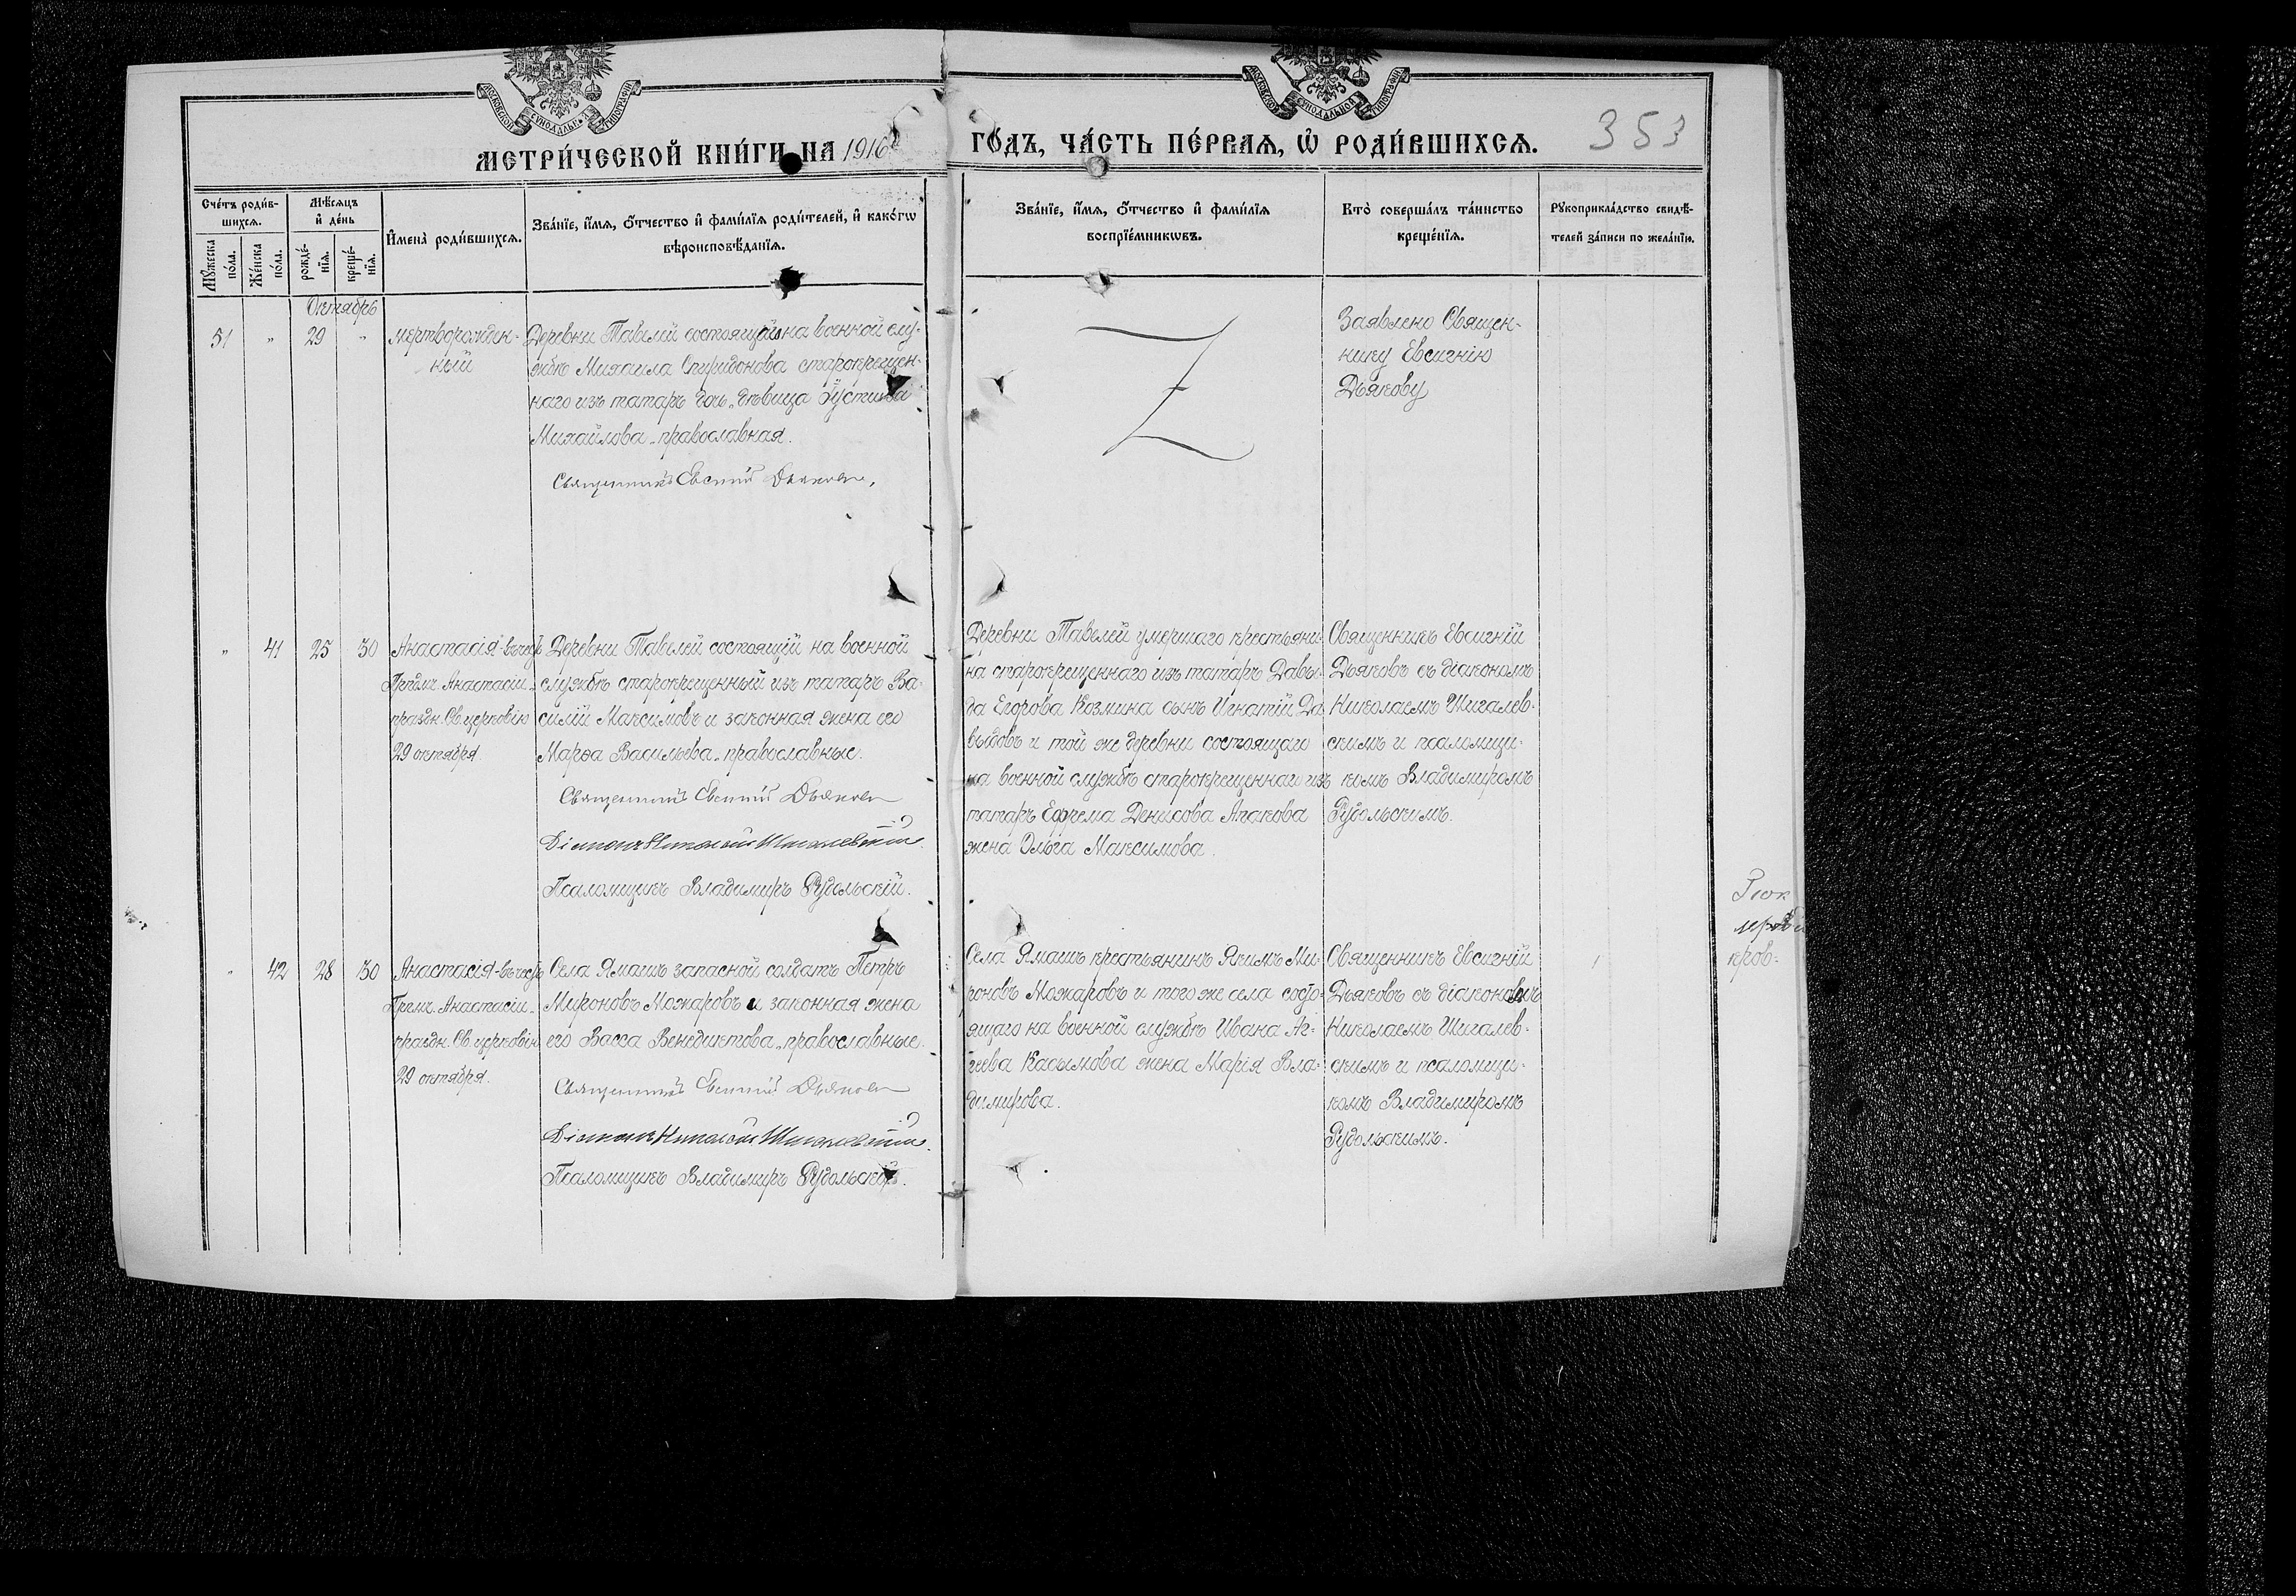 МОСКОВСКОЙ СУНОДАЛЬНОЙ ТИПОГРАФІИ
МОСКОВСКОЙ СУНОДАЛЬНОЙ ТИПОГРАФІИ
МЕТРИ́ЧЕСКОЙ КНИ́ГИ НА 1916
ГО́ДЪ, ЧА́СТЬ ПЕ́РВАѦ, Ѡ РОДИ́ВШИХСѦ.
353
Сче́тъ роди́в-
шихсѧ.
Мꙋ́жеска
по́ла.
Же́нска
по́ла.
Мѣ́сѧцъ
и де́нь
рожде́-
нїѧ.
креще́-
нїѧ.
Имена̀ роди́вшихсѧ.
Зва́нїе, и́мѧ, ѻ́тчество и фами́лїѧ роди́телей, и како́гѡ
вѣроисповѣ́данїѧ.
Зва́нїе, и́мѧ, ѻ́тчество и фами́лїѧ
воспрїе́мникѡвъ.
Кто̀ соверша́лъ та́инство
креще́нїѧ.
Рꙋкоприкла́дство свидѣ́-
телей за́писи по жела́нїю.
Октябрь
51 " 29 "
мертворожден-
ный
Деревни Тавелей состоящаго на военной слу-
жбѣ Михаила Спиридонова старокрещен-
наго изъ татаръ дочь-дѣвица Іустина
Михайлова-православная.
Священникъ Евсигній Дьяковъ,
Заявлено Священ-
нику Евсигнію
Дьякову
" 41 25 30
Анастасія-въ честь
Прпдмч. Анастасіи-
праздн. Св. церковію
29 октября.
Деревни Тавелей состоящій на военной
службѣ старокрещенный изъ татаръ Ва-
силій Максимовъ и законная жена его
Марѳа Васильева-православные.
Священникъ Евсигній Дьяковъ
Діаконъ Николай Шигалевскій
Псаломщикъ Владимиръ Рудольскій.
Деревни Тавелей умершаго крестьяни-
на старокрещеннаго изъ татаръ Давы-
да Егорова Козмина сынъ Игнатій Да-
выдовъ и той же деревни состоящаго
на военной службѣ старокрещеннаго изъ
татаръ Ефрема Денисова Агакова
жена Ольга Максимова.
Священникъ Евсигній
Дьяковъ съ діакономъ
Николаемъ Шигалев-
скимъ и псаломщи-
комъ Владимиромъ
Рудольскимъ.
" 42 28 30
Анастасія-въ честь
Прпмч. Анастасіи-
праздн. Св. церковію
29 октября.
Села Ямашъ запасной солдатъ Петръ
Мироновъ Можаровъ и законная жена
его Васса Венедиктова-православные.
Священникъ Евсигній Дьяковъ
Діаконъ Николай Шигалевскій.
Псаломщикъ Владимиръ Рудольскій.
Села Ямашъ крестьянинъ Якимъ Ми-
роновъ Можаровъ и того же села состо-
ящаго на военной службѣ Ивана Аг-
геева Касымова жена Марія Вла-
димирова.
Священникъ Евсигній
Дьяковъ съ діакономъ
Николаемъ Шигалев-
скимъ и псаломщи-
комъ Владимиромъ
Рудольскимъ.